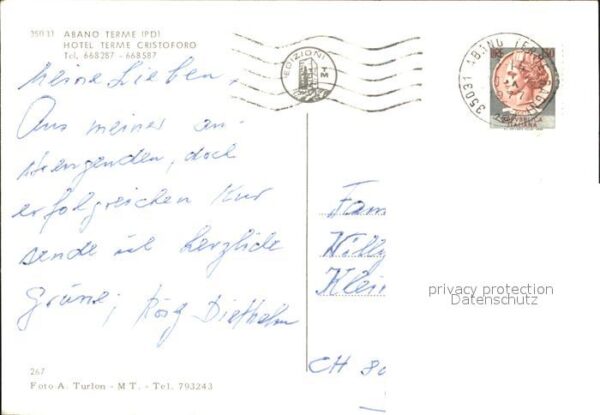 35031 ABANO TERME (PD)
HOTEL TERME CRISTOFORO
Tel. 668287 - 668587
Meine Lieben,
Aus meiner an-
strengenden, doch
erfolgreichen Kur
sende ich herzliche
Grüsse, Diethelm
EDIZIONI
TM
35031 ABANO TERME
REPUBBLICA
ITALIANA
Fam
Willy
Klein
CH 80
privacy protection
Datenschutz
267
Foto A. Turlon - M T. - Tel. 793243